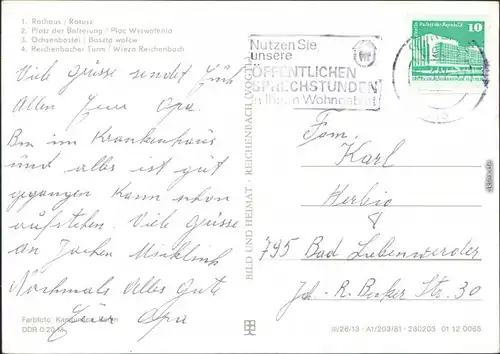 1. Rathaus / Ratusz
2. Platz der Befreiung / Plac Wyswolenia
3. Ochsenbastei / Baszta wołów
4. Reichenbacher Turm / Wieża Reichenbach
Viele Grüsse sendet Euch
Allen Euer Opa.
Bin im Krankenhaus
und alles ist gut
gegangen kann schon
aufstehen. Viele Grüsse
an Jochen
Nochmals Alles Gute
Euer Opa
Farbfoto:
DDR 0,20 M
BILD UND HEIMAT · REICHENBACH (VOGTL)
Nutzen Sie
unsere
ÖFFENTLICHEN
SPRECHSTUNDEN
in Ihrem Wohngebiet
10
Fam.
Karl
Herbig
8
795 Bad Liebenwerda
Joh.-R. Becher Str. 30
III/26/13 · A1/203/81 · 280203 01 12 0065